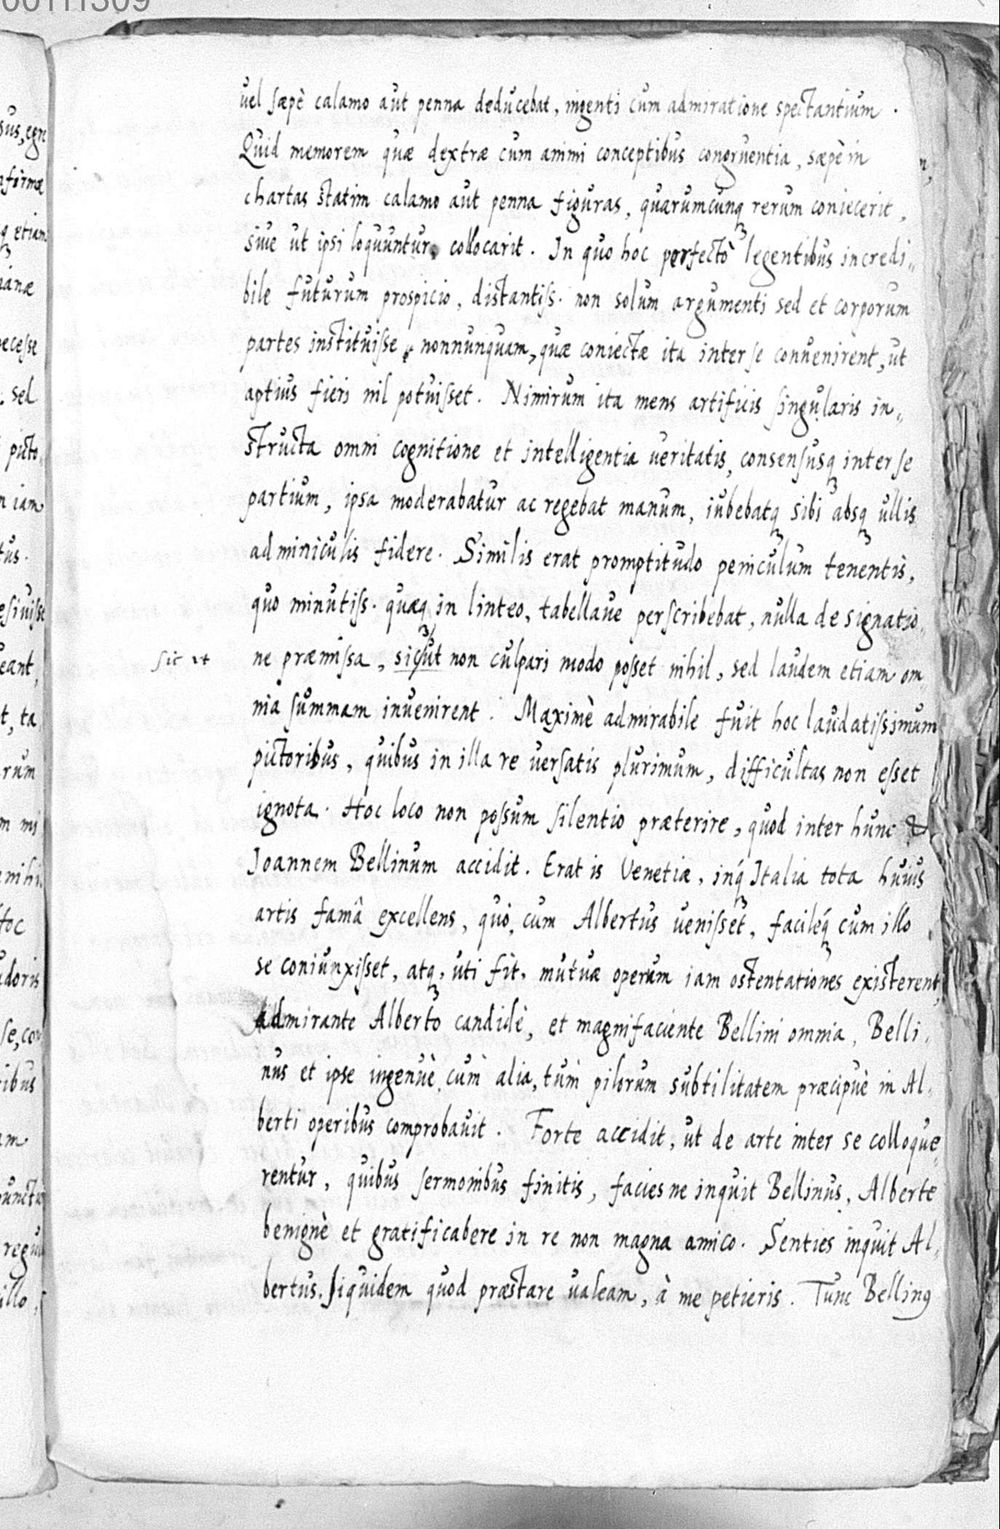 00111309
uel sæpè calamo aut penna deducebat, ingenti cum admiratione spectantium.
Quid memorem quæ dextræ cum animi conceptibus congruentia, sæpè in
chartas statim calamo aut penna figuras, quarumcunq rerum coniecerit,
siue ut ipsi loquuntur, collocarit. In quo hoc perfectò legentibus incredi„
bile futurum prospicio, distantiss. non solum argumenti sed et corporum
partes instituisse nonnunquam, quæ coniectæ ita inter se conuenirent, ut
aptius fieri nil potuisset. Nimirum ita mens artificis singularis in„
structa omni cognitione et intelligentia ueritatis, consensusq inter se
partium, ipsa moderabatur ac regebat manum, iubebatq sibi absq ullis
adminiculis fidere. Similis erat promptitudo peniculum tenentis,
quo minutiss. quæq in linteo, tabellaue perscribebat, nulla designatio„
sic ut
ne præmissa, sicut non culpari modo posset nihil, sed laudem etiam om„
nia summam inuenirent. Maximè admirabile fuit hoc laudatissimum
pictoribus, quibus in illa re uersatis plurimum, difficultas non esset
ignota. Hoc loco non possum silentio præterire, quod inter hunc &
Joannem Bellinum accidit. Erat is Venetiæ, inq́ Italia tota huius
artis famâ excellens, quò, cum Albertus uenisset, facileq́ cum illo
se coniunxisset, atq, uti fit, mutuæ operum iam ostentationes existerent,
admirante Alberto candidè, et magnifaciente Bellini omnia, Belli„
nus et ipse ingenuè cum alia, tum pilorum subtilitatem præcipuè in Al„
berti operibus comprobauit. Forte accidit, ut de arte inter se colloque„
rentur, quibus sermonibus finitis, facies ne inquit Bellinus, Alberte
benignè et gratificabere in re non magna amico. Senties inquit Al„
bertus, siquidem quod præstare ualeam, à me petieris. Tunc Bellinꝰ